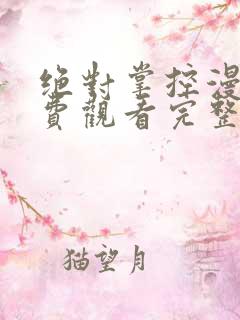 絕對掌控漫
費觀看完整
猫望月